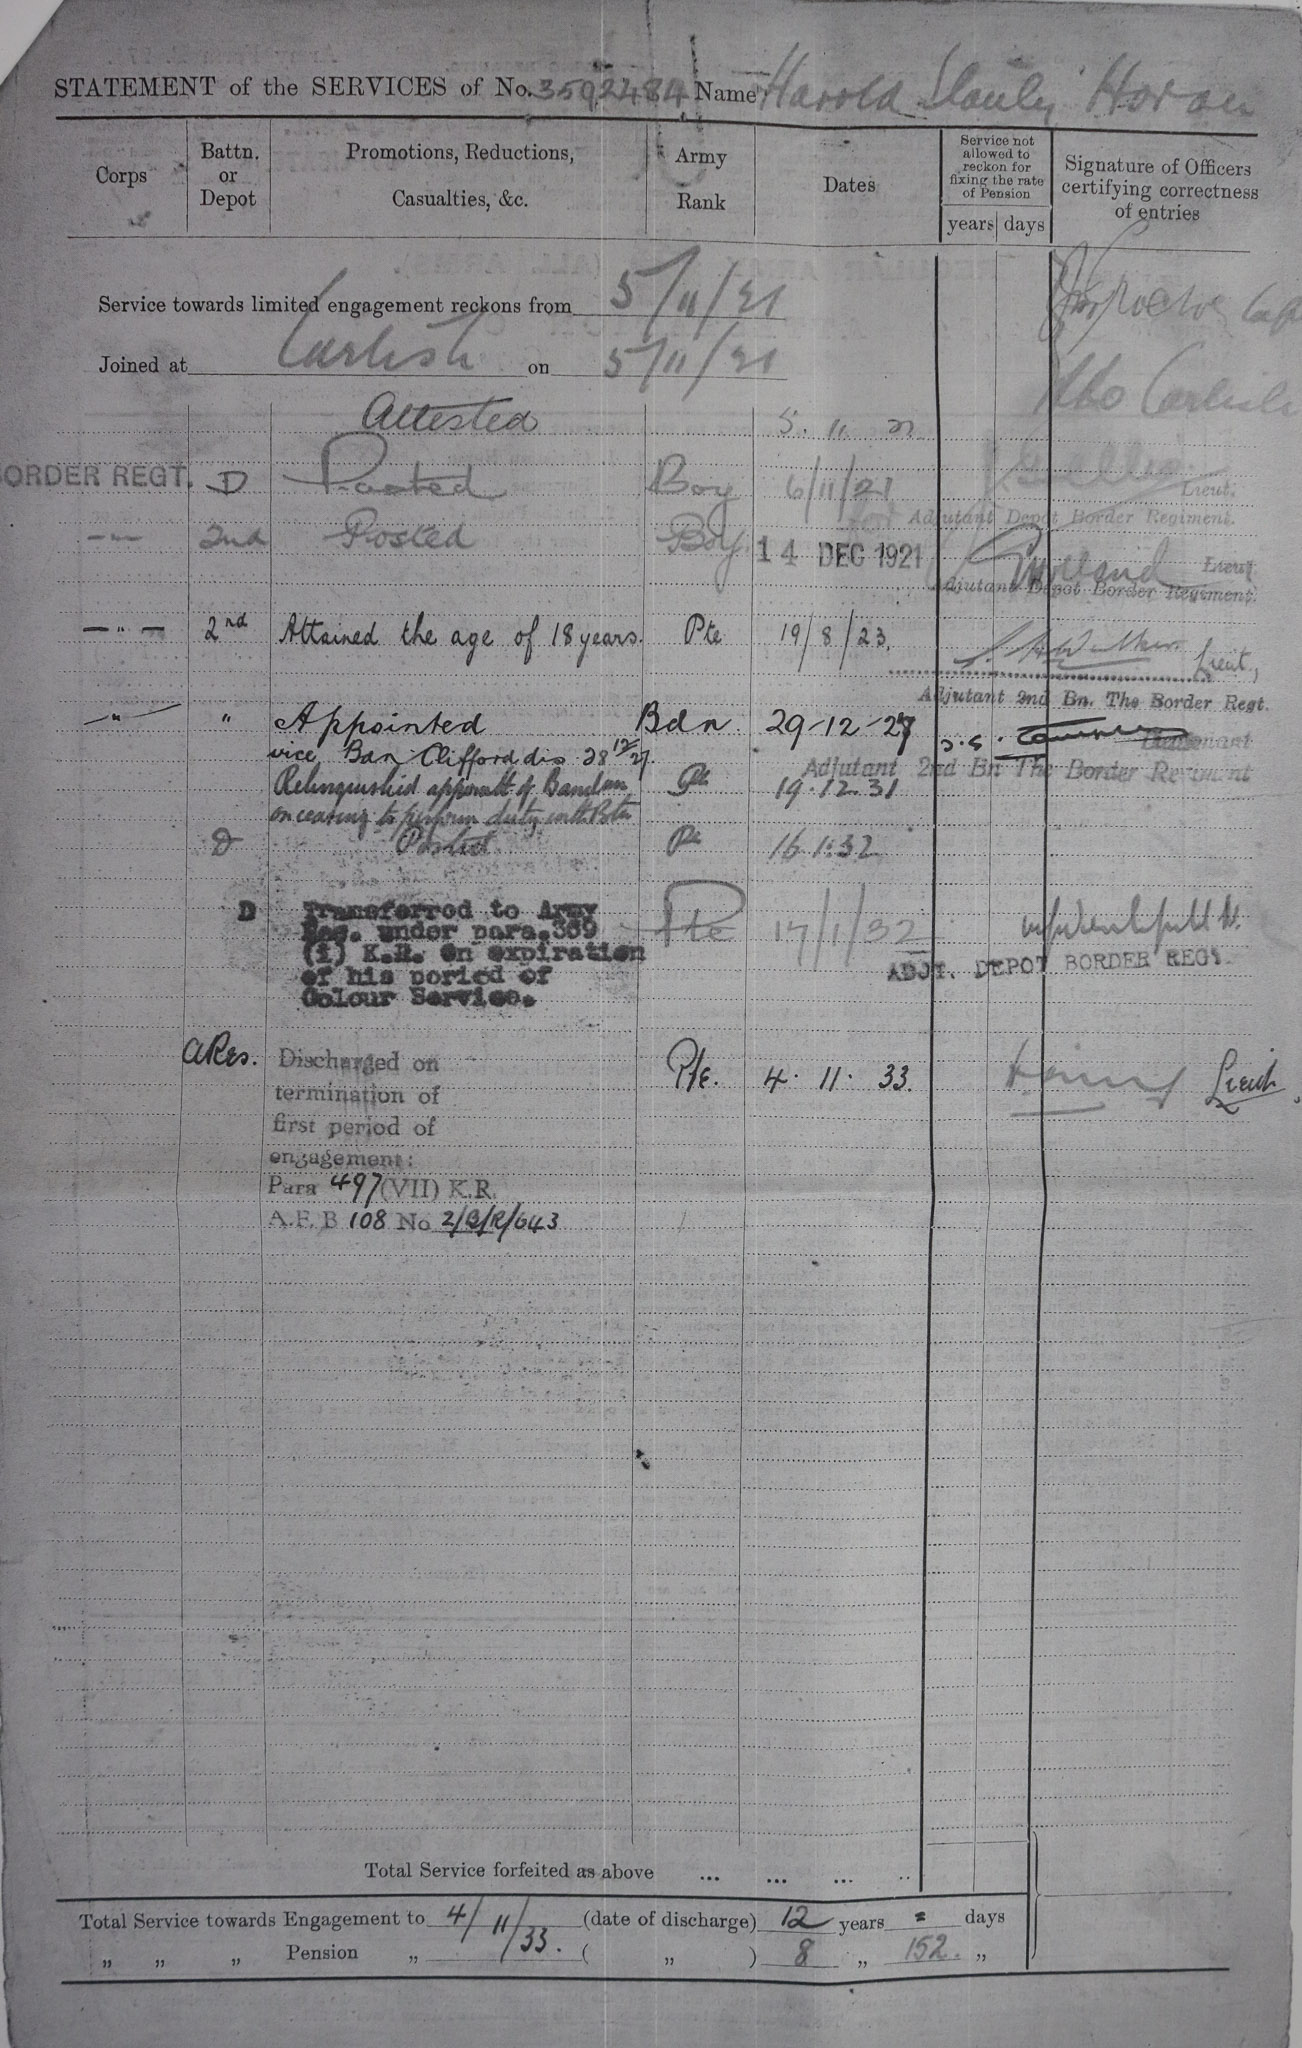 STATEMENT of the SERVICES of No. 3592484 Name Harold Stanley Horan
Corps
Battn. or Depot
Promotions, Reductions, Casualties, &c.
Army Rank
Dates
Service not allowed to reckon for fixing the rate of Pension
years days
Signature of Officers certifying correctness of entries
Service towards limited engagement reckons from 5/11/21
Joined at Carlisle on 5/11/21
Attested 5. 11. 21
Carlisle
BORDER REGT. D Posted Boy 6/11/21
Lieut.
for Adjutant Depot Border Regiment.
—"— 2nd Posted Boy 14 DEC 1921
Lieut
Adjutant Depot Border Regiment.
—"— 2nd Attained the age of 18 years. Pte 19/8/23.
Lieut,
Adjutant 2nd Bn. The Border Regt.
—"— " Appointed Bdn. 29-12-27
Lieutenant
vice Bdn Clifford dis. 28 12/27.
Adjutant 2nd Bn The Border Regiment
Relinquished appointt of Bandsman Pte 19.12.31
on ceasing to perform duty with Bn
D Posted Pte 16 1.32
D Transferred to Army
Res. under para.369
(i) K.R. On expiration Pte 17/1/32
of his period of
Colour Service.
ADJT. DEPOT BORDER REGT.
ARes. Discharged on Pte. 4. 11. 33. Lieut.
termination of
first period of
engagement:
Para 497 (VII) K.R.
A.F. B 108 No 2/B/R/643
Total Service forfeited as above ... ... ... ..
Total Service towards Engagement to 4/11/33. (date of discharge) 12 years = days
" " " Pension " ( " ) 8 " 152. "